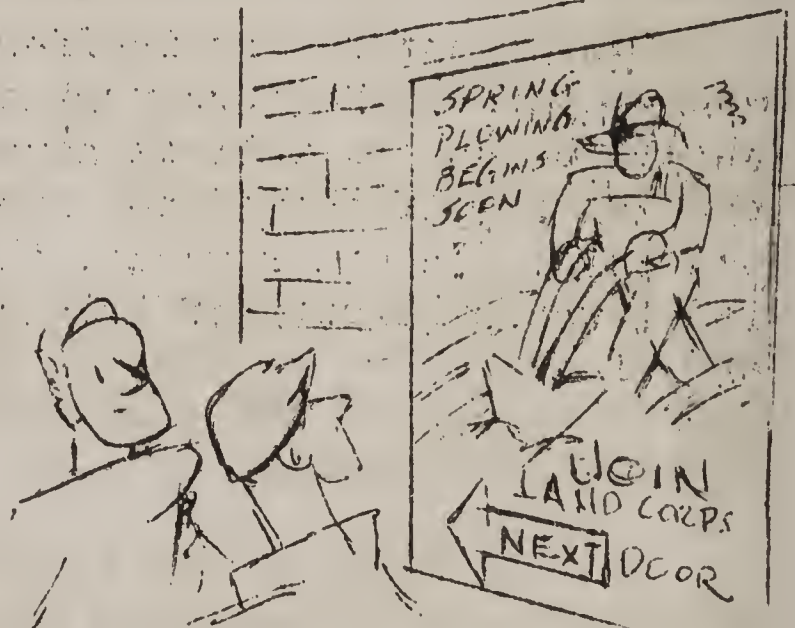 SPRING
PLOWING
BEGINS
SOON
JOIN
LAND CORPS
NEXT DOOR